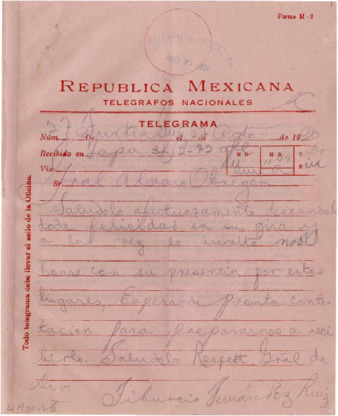 Forma M-3
REPUBLICA MEXICANA
TELEGRAFOS NACIONALES
TELEGRAMA
Núm. 27 De Tuxtla Gu el de Agto de 1920
Recibido en Tapa
H. D. H. R. T.
Vía
Sr Gral Alvaro Obregón
Saludolo afectuosamente deseandole
toda felicidad en su gira y
a la vez lo invito nos
honre con su presencia por estos
lugares, Esperando pronta contes
tacion para prepararnos a reci
birlo. Saludolo Respett Gral de
Div. Tiburcio Fernán Ruiz
URGENTE
Todo telegrama debe llevar el sello de la Oficina.